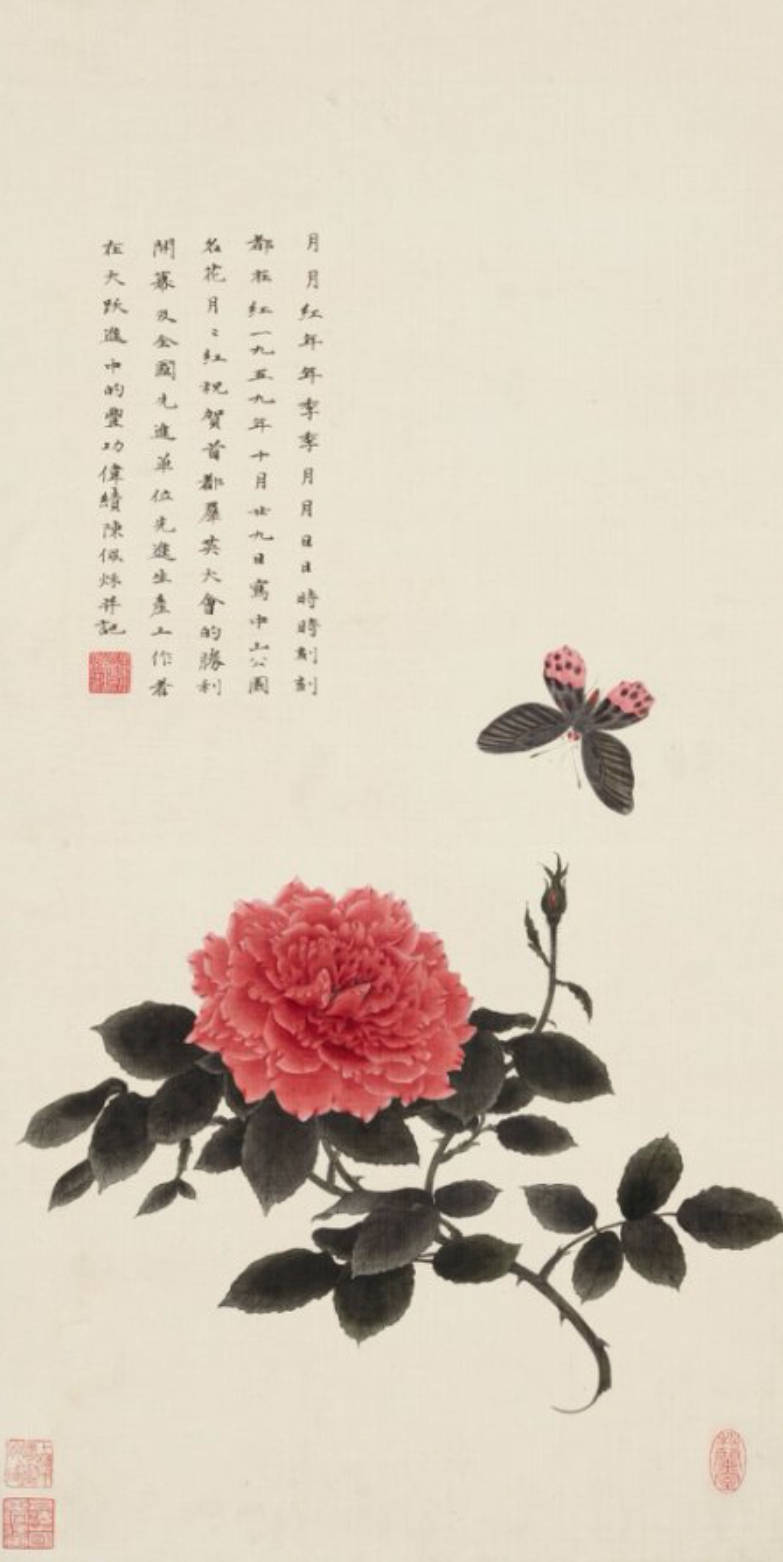 月月红年年季季月月日日時時刻刻
都在红一九五九年十月廿九日寫中山公園
名花月〻红祝賀首都羣英大會的勝利
開幕及全國先進单位先進生產工作者
在大跃進中的豐功偉績陳佩秌并記